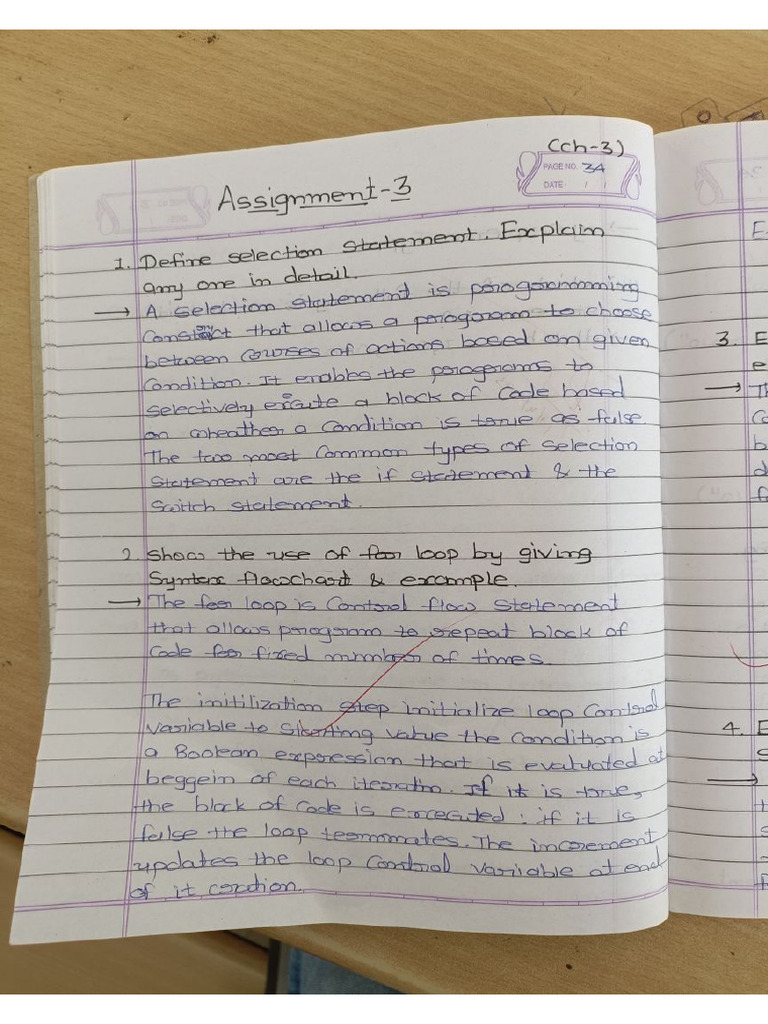 (ch-3)
PAGE NO. 34
DATE / /
Assignment-3
1. Define selection statement. Explain
any one in detail.
→ A selection statement is porogoramming
Construct that allows a porogoram to choose
between courses of actions based on given
Condition. It enables the porograms to
selectively execute a block of Code based
on wheather a Condition is torue as false.
The two most Common types of selection
statement are the if statement & the
Switch statement.
2. Show the use of for loop by giving
Syntex flowchart & example.
→ The for loop is Control flow statement
that allows porogram to repeat block of
Code for fixed number of times.
The initilization step initialize loop Control
variable to starting value the condition is
a Boolean expression that is evaluated at
beggein of each iteratin. If it is torue,
the block of Code is executed : if it is
false the loop teominates. The increment
updates the loop Control variable at end
of it coration.
3. E
e
→ Th
Co
b
d
f
4. E
s
→